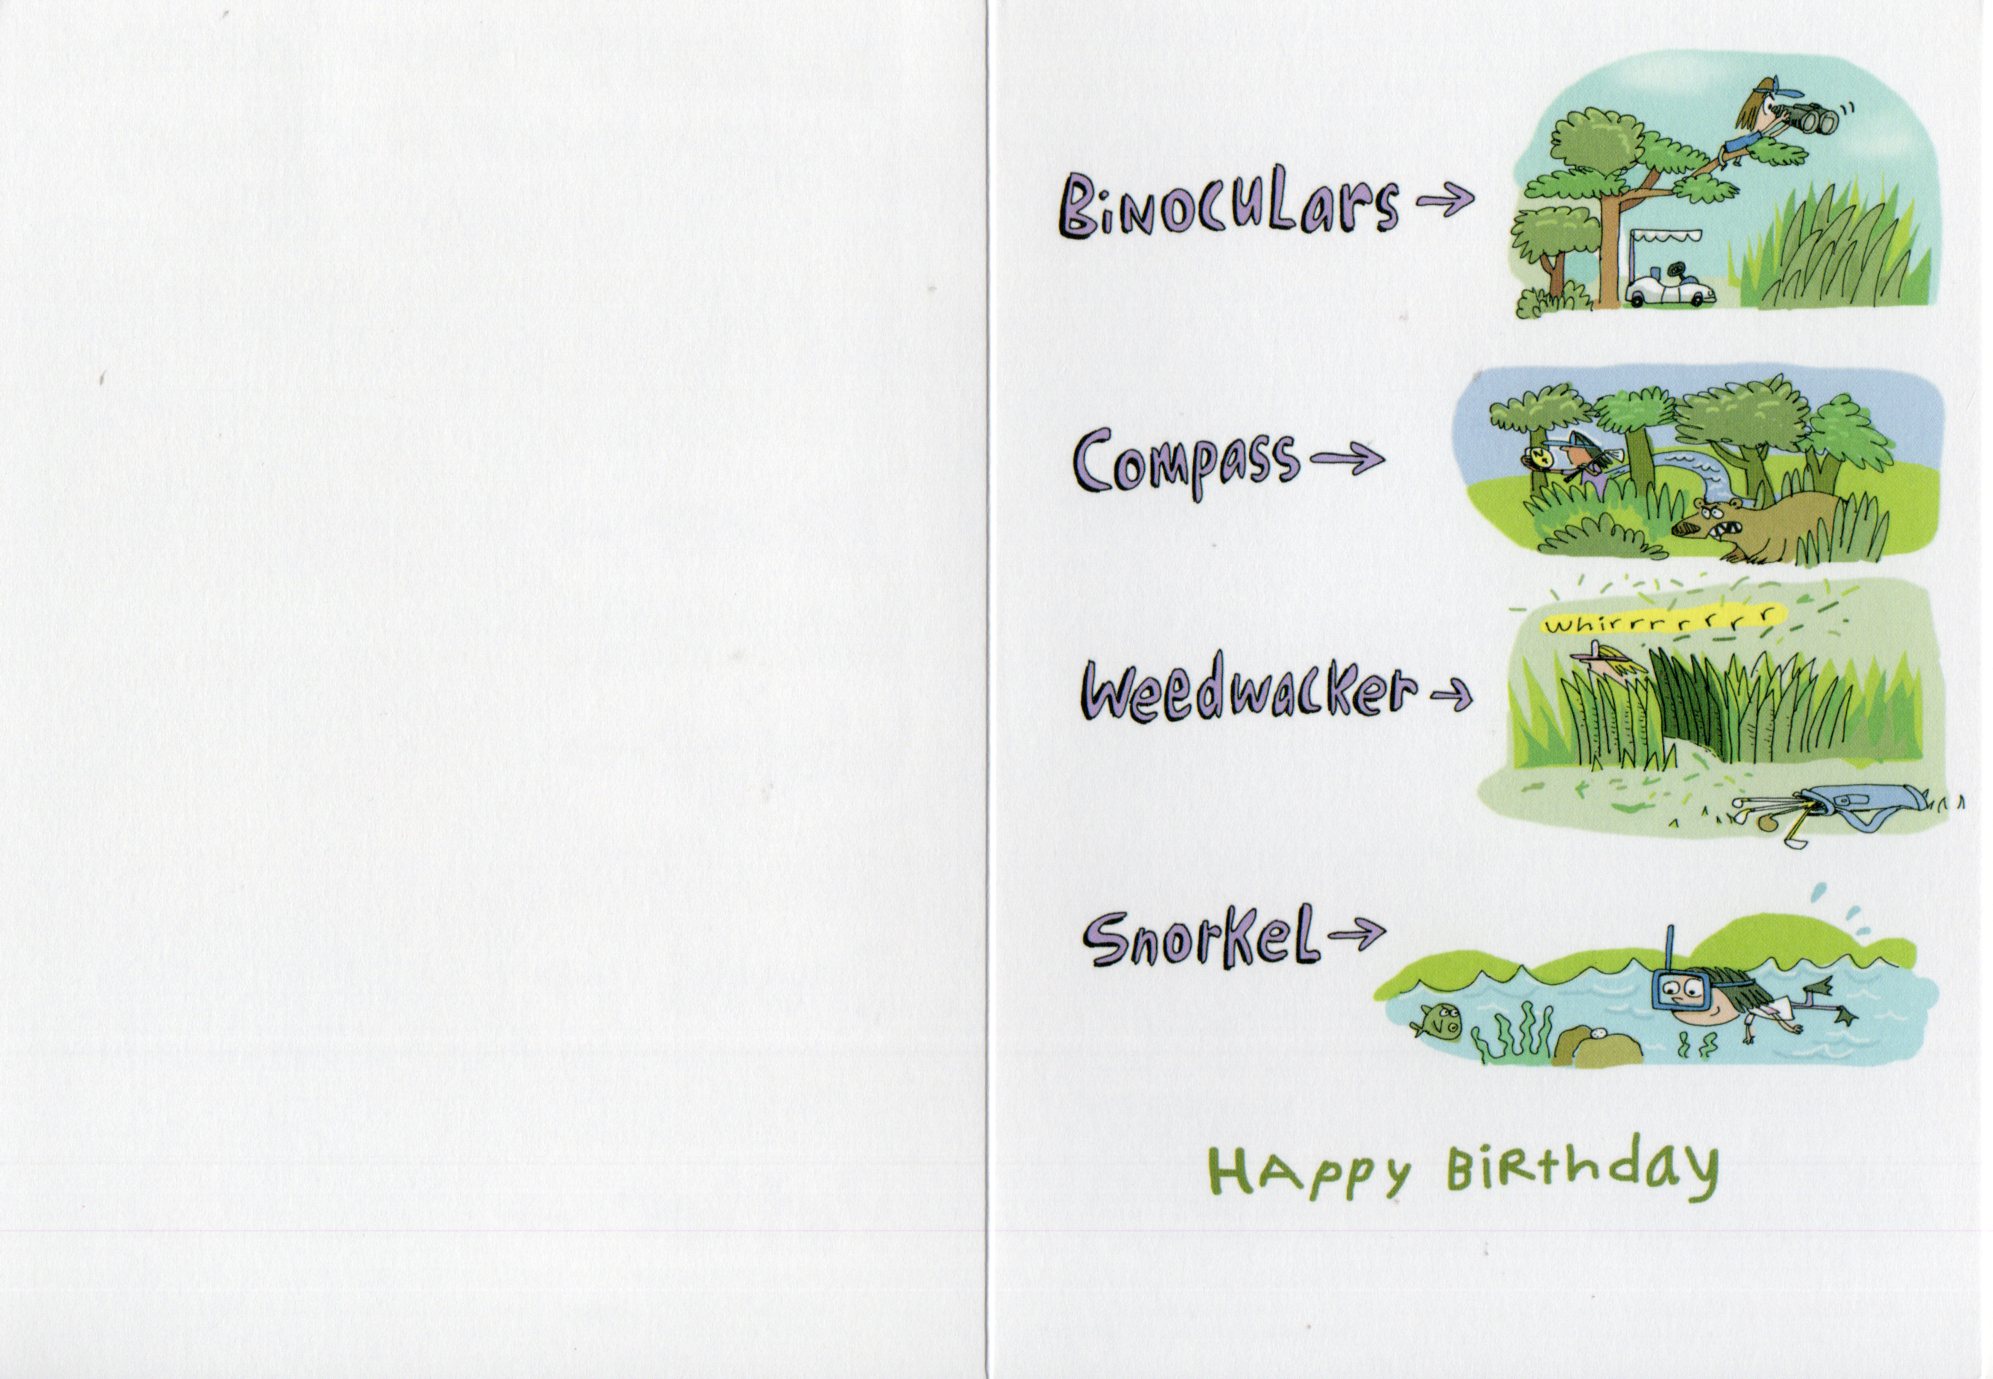 Binoculars →
Compass →
N
Weedwacker →
whirrrrrrrr
Snorkel →
Happy Birthday